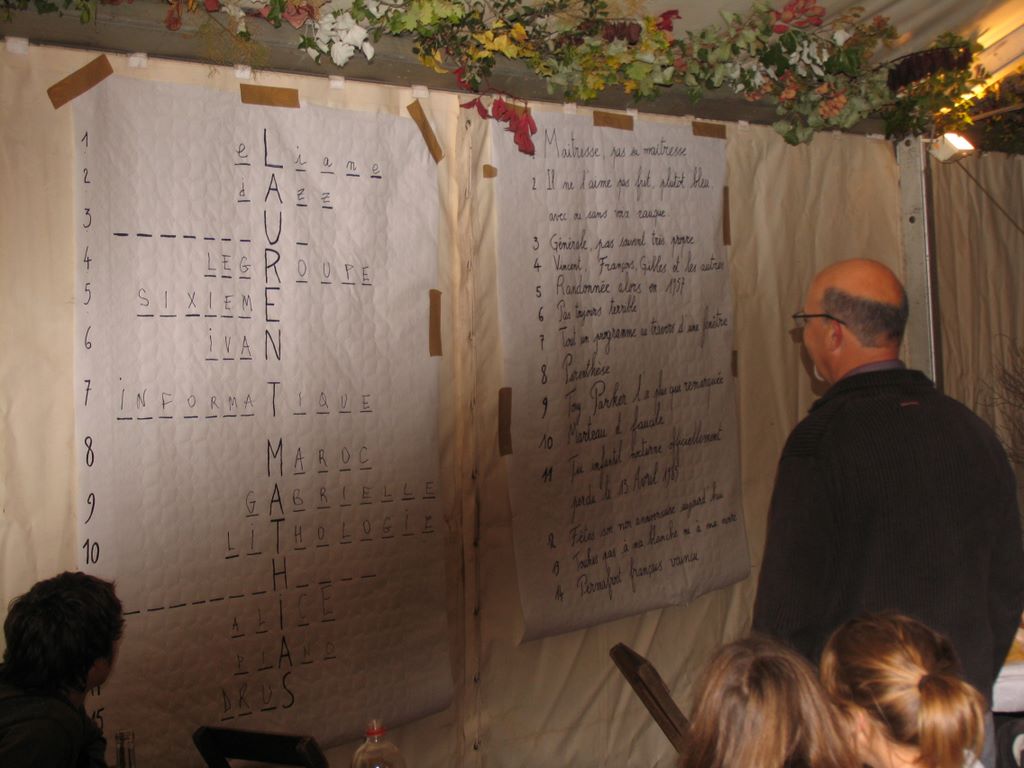 1 eLiane
2 dAzz
3 U
4 LEGROUPE
5 SIXIEME
6 iVAN
7 iNFORMATIQUE
8 MAROC
9 GABRIELLE
10 LITHOLOGIE
H
ALiCE
PIANO
DRUS
1 Maîtresse, pas sa maîtresse
2 Il ne l'aime pas fort, plutôt bleu,
avec ou sans voix rauque.
3 Générale, pas souvent très propre
4 Vincent, François, Gilles et les autres
5 Randonnée alors en 1957
6 Pas toujours terrible
7 Tout un programme au travers d'une fenêtre
8 Parenthèse
9 Tony Parker l'a plus que remarquée
10 Marteau et faucille
11 Tic infantil nocturne officiellement
perdu le 13 Avril 1985
12 Fêtes son non anniversaire aujourd'hui
13 Touches pas à ma blanche ni à ma noire
14 Permafrost français vaincu